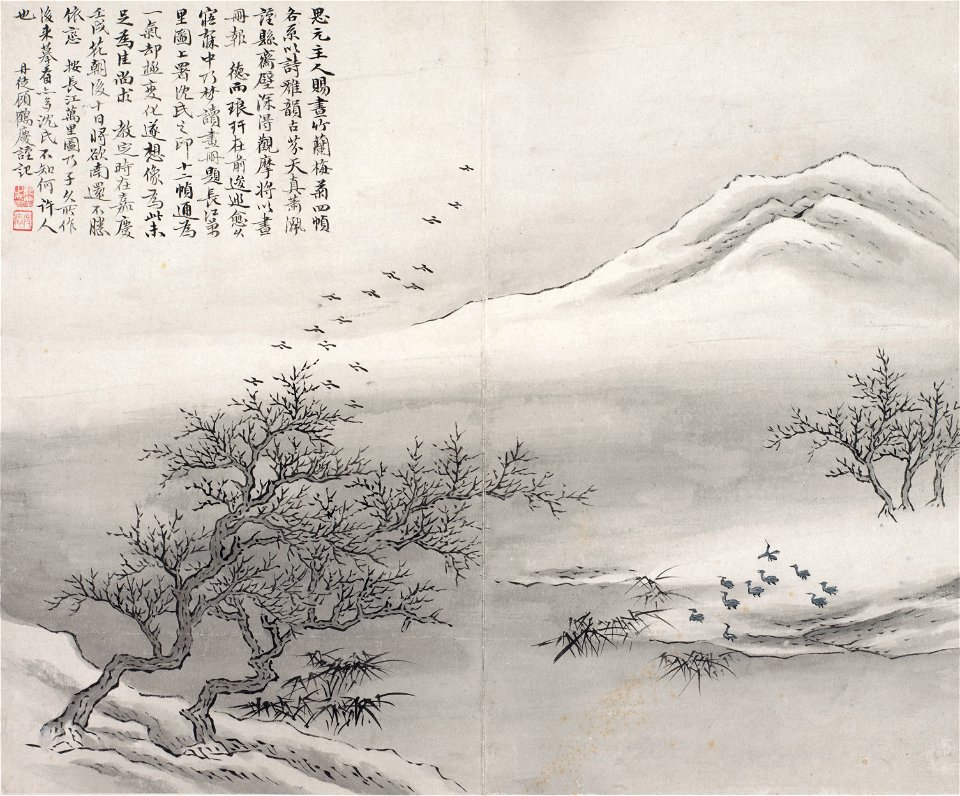 思元主人賜畫竹蘭梅菊四幀
各系以詩雅韻古芬天真蕭颯
謹縣齋壁深得觀摩將以畫
冊報 德而琅玕在前逡巡愈久
寤寐中乃梦讀畫冊題長江萬
里圖上署沈氏之印十二幀通為
一氣却極變化遂想像為此未
足為佳尚求 教定時在嘉慶
壬戌花朝後十日將欲南還不勝
依戀 按長江萬里圖乃子久所作
後來摹者亦多沈氏不知何許人
也 丹徒顧鶴慶謹記